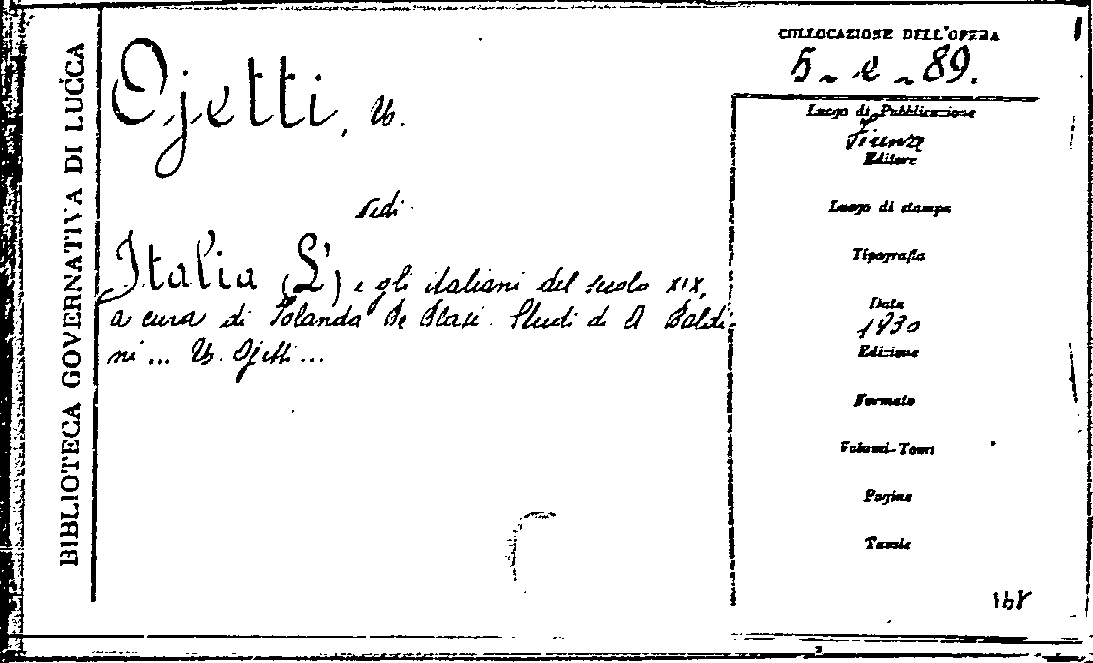 BIBLIOTECA GOVERNATIVA DI LUCCA
Ojetti, U.
vedi
Italia (L') e gli italiani del secolo XIX,
a cura di Jolanda De Blasi. Studi di A Baldi-
ni... U. Ojetti...
COLLOCAZIONE DELL'OPERA
5-e-89.
Luogo di Pubblicazione
Firenze
Editore
Luogo di stampa
Tipografia
Data
1930
Edizione
Formato
Volumi-Tomi
Pagine
Tavole